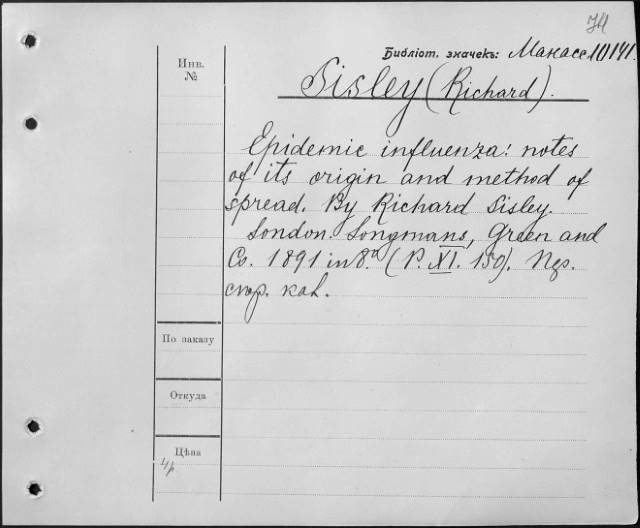 74
Библіот. значекъ: Манасс 10141.
Инв.
№
Sisley (Richard).
Epidemic influenza: notes
of its origin and method of
spread. By Richard Sisley.
London. Longmans, Green and
Co. 1891 in 8º. (P. XI. 150).
кал.
По заказу
Откуда
Цѣна
4р